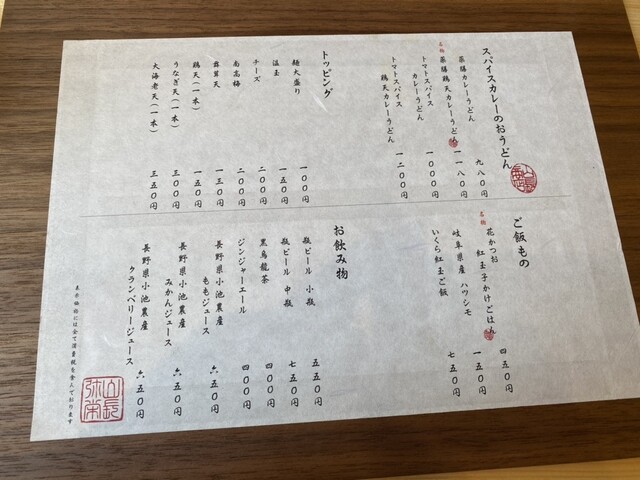 スパイスカレーのおうどん
薬膳カレーうどん 九八〇円
名物 薬膳鶏天カレーうどん 一一八〇円
トマトスパイス
カレーうどん 一〇〇〇円
トマトスパイス
鶏天カレーうどん 一二〇〇円
トッピング
麺大盛り 一〇〇円
温玉 一五〇円
チーズ 二〇〇円
南高梅 二〇〇円
舞茸天 一三〇円
鶏天(一本) 一五〇円
うなぎ天(一本) 三〇〇円
大海老天(一本) 三五〇円
ご飯もの
名物 花かつお
紅玉子かけごはん 四五〇円
岐阜県産 ハツシモ 一五〇円
いくら紅玉ご飯 七五〇円
お飲み物
瓶ビール 小瓶 五五〇円
瓶ビール 中瓶 七五〇円
黒烏龍茶 四〇〇円
ジンジャーエール 四〇〇円
長野県小池農産
ももジュース 六五〇円
長野県小池農産
みかんジュース 六五〇円
長野県小池農産
クランベリージュース 六五〇円
表示価格には全て消費税を含んでおります
山長
弥栄